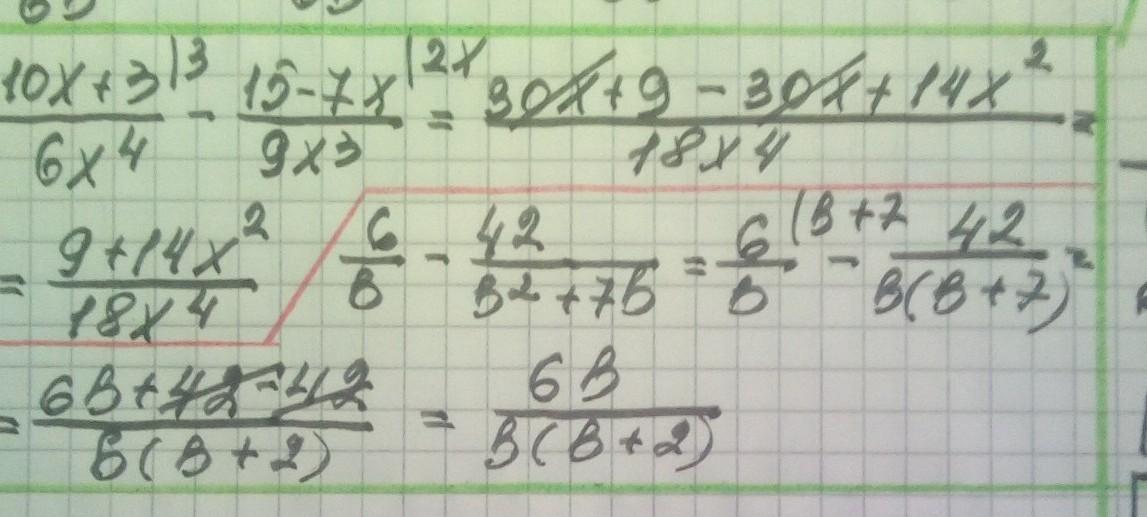 (10x+3)/(6x⁴) |3 - (15-7x)/(9x³) |2x = (30x+9-30x+14x²)/(18x⁴) =
= (9+14x²)/(18x⁴)
6/в - 42/(в²+7в) = 6/в |в+7 - 42/(в(в+7)) =
= (6в+42-42)/(в(в+2)) = 6в/(в(в+2))